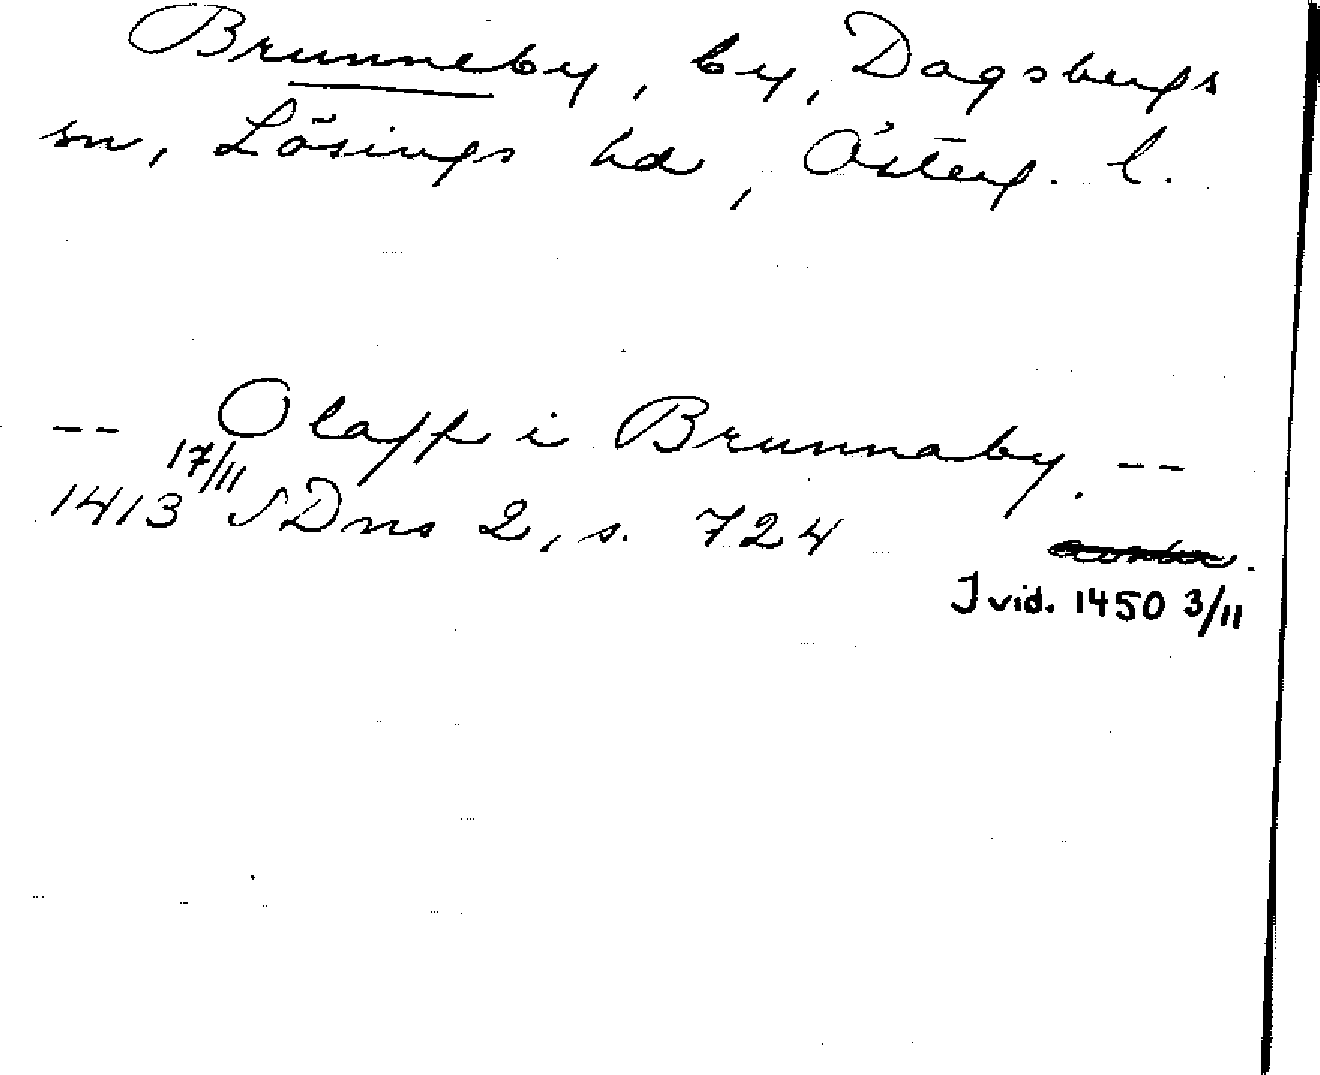 Brunneby, by, Dagsbergs
sn, Lösings hd, Österg. l.
-- Olaff i Brunnaby. --
1413 17/11 SDns 2, s. 724
I vid. 1450 3/11